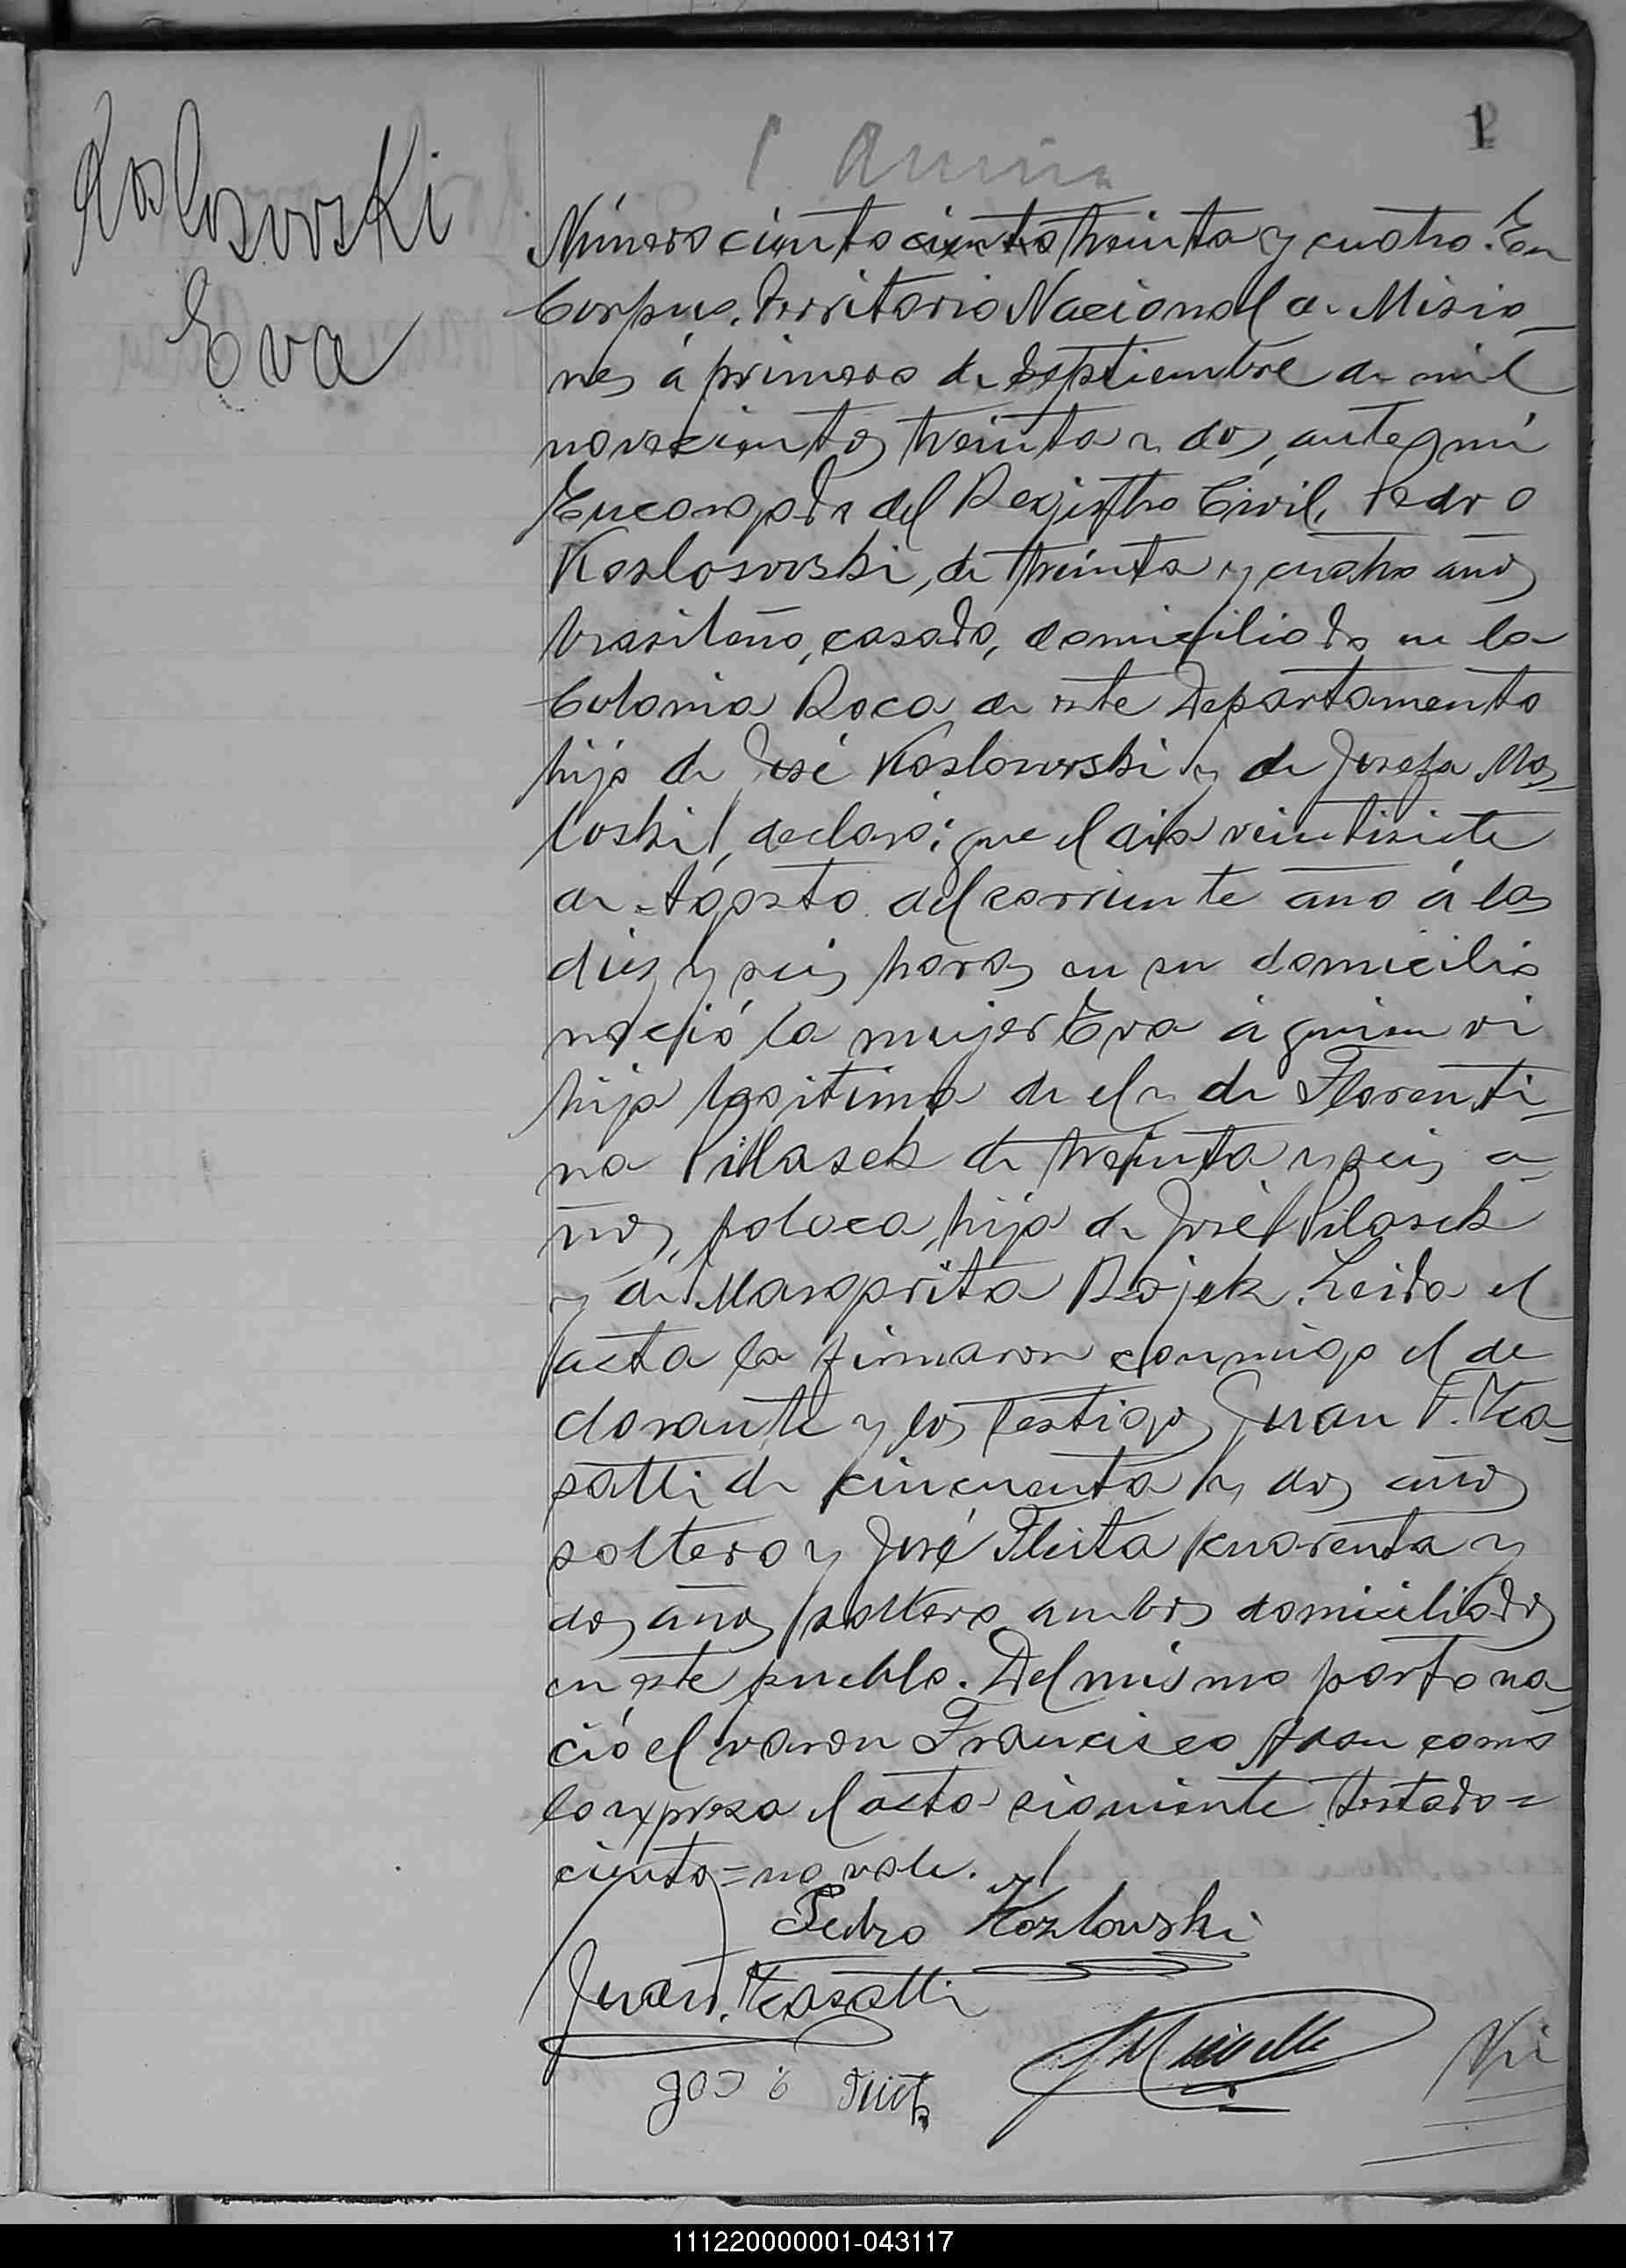 Koslowski
Eva
1
Número ciento ciento treinta y cuatro. En
Corpus, Territorio Nacional de Misio-
nes á primero de Septiembre de mil
novecientos treinta y dos, ante mí
Encargado del Registro Civil, Pedro
Koslowski, de treinta y cuatro años
brasileño, casado, domiciliado en la
Colonia Roca de este Departamento
hijo de José Koslowski y de Josefa Ma-
loski, declaró: que el día veintisiete
de Agosto del corriente año á las
diez y seis horas en su domicilio
nació la mujer Eva á quien vi
hija legitima de el y de Florenti-
na Pillasek de treinta y seis a-
ños, polaca, hija de José Pilasek
y de Margarita Rojek. Leida el
acta la firmaron conmigo el de
clarante y los testigos Juan F.
de cincuenta y dos años
soltero y José Fleita cuarenta y
dos años soltero ambos domiciliados
en este pueblo. Del mismo parto na
ció el varon Francisco Adan como
lo expresa el acta siguiente. Testado=
ciento=no vale.
Pedro Kozlowski
Juan
José
111220000001-043117